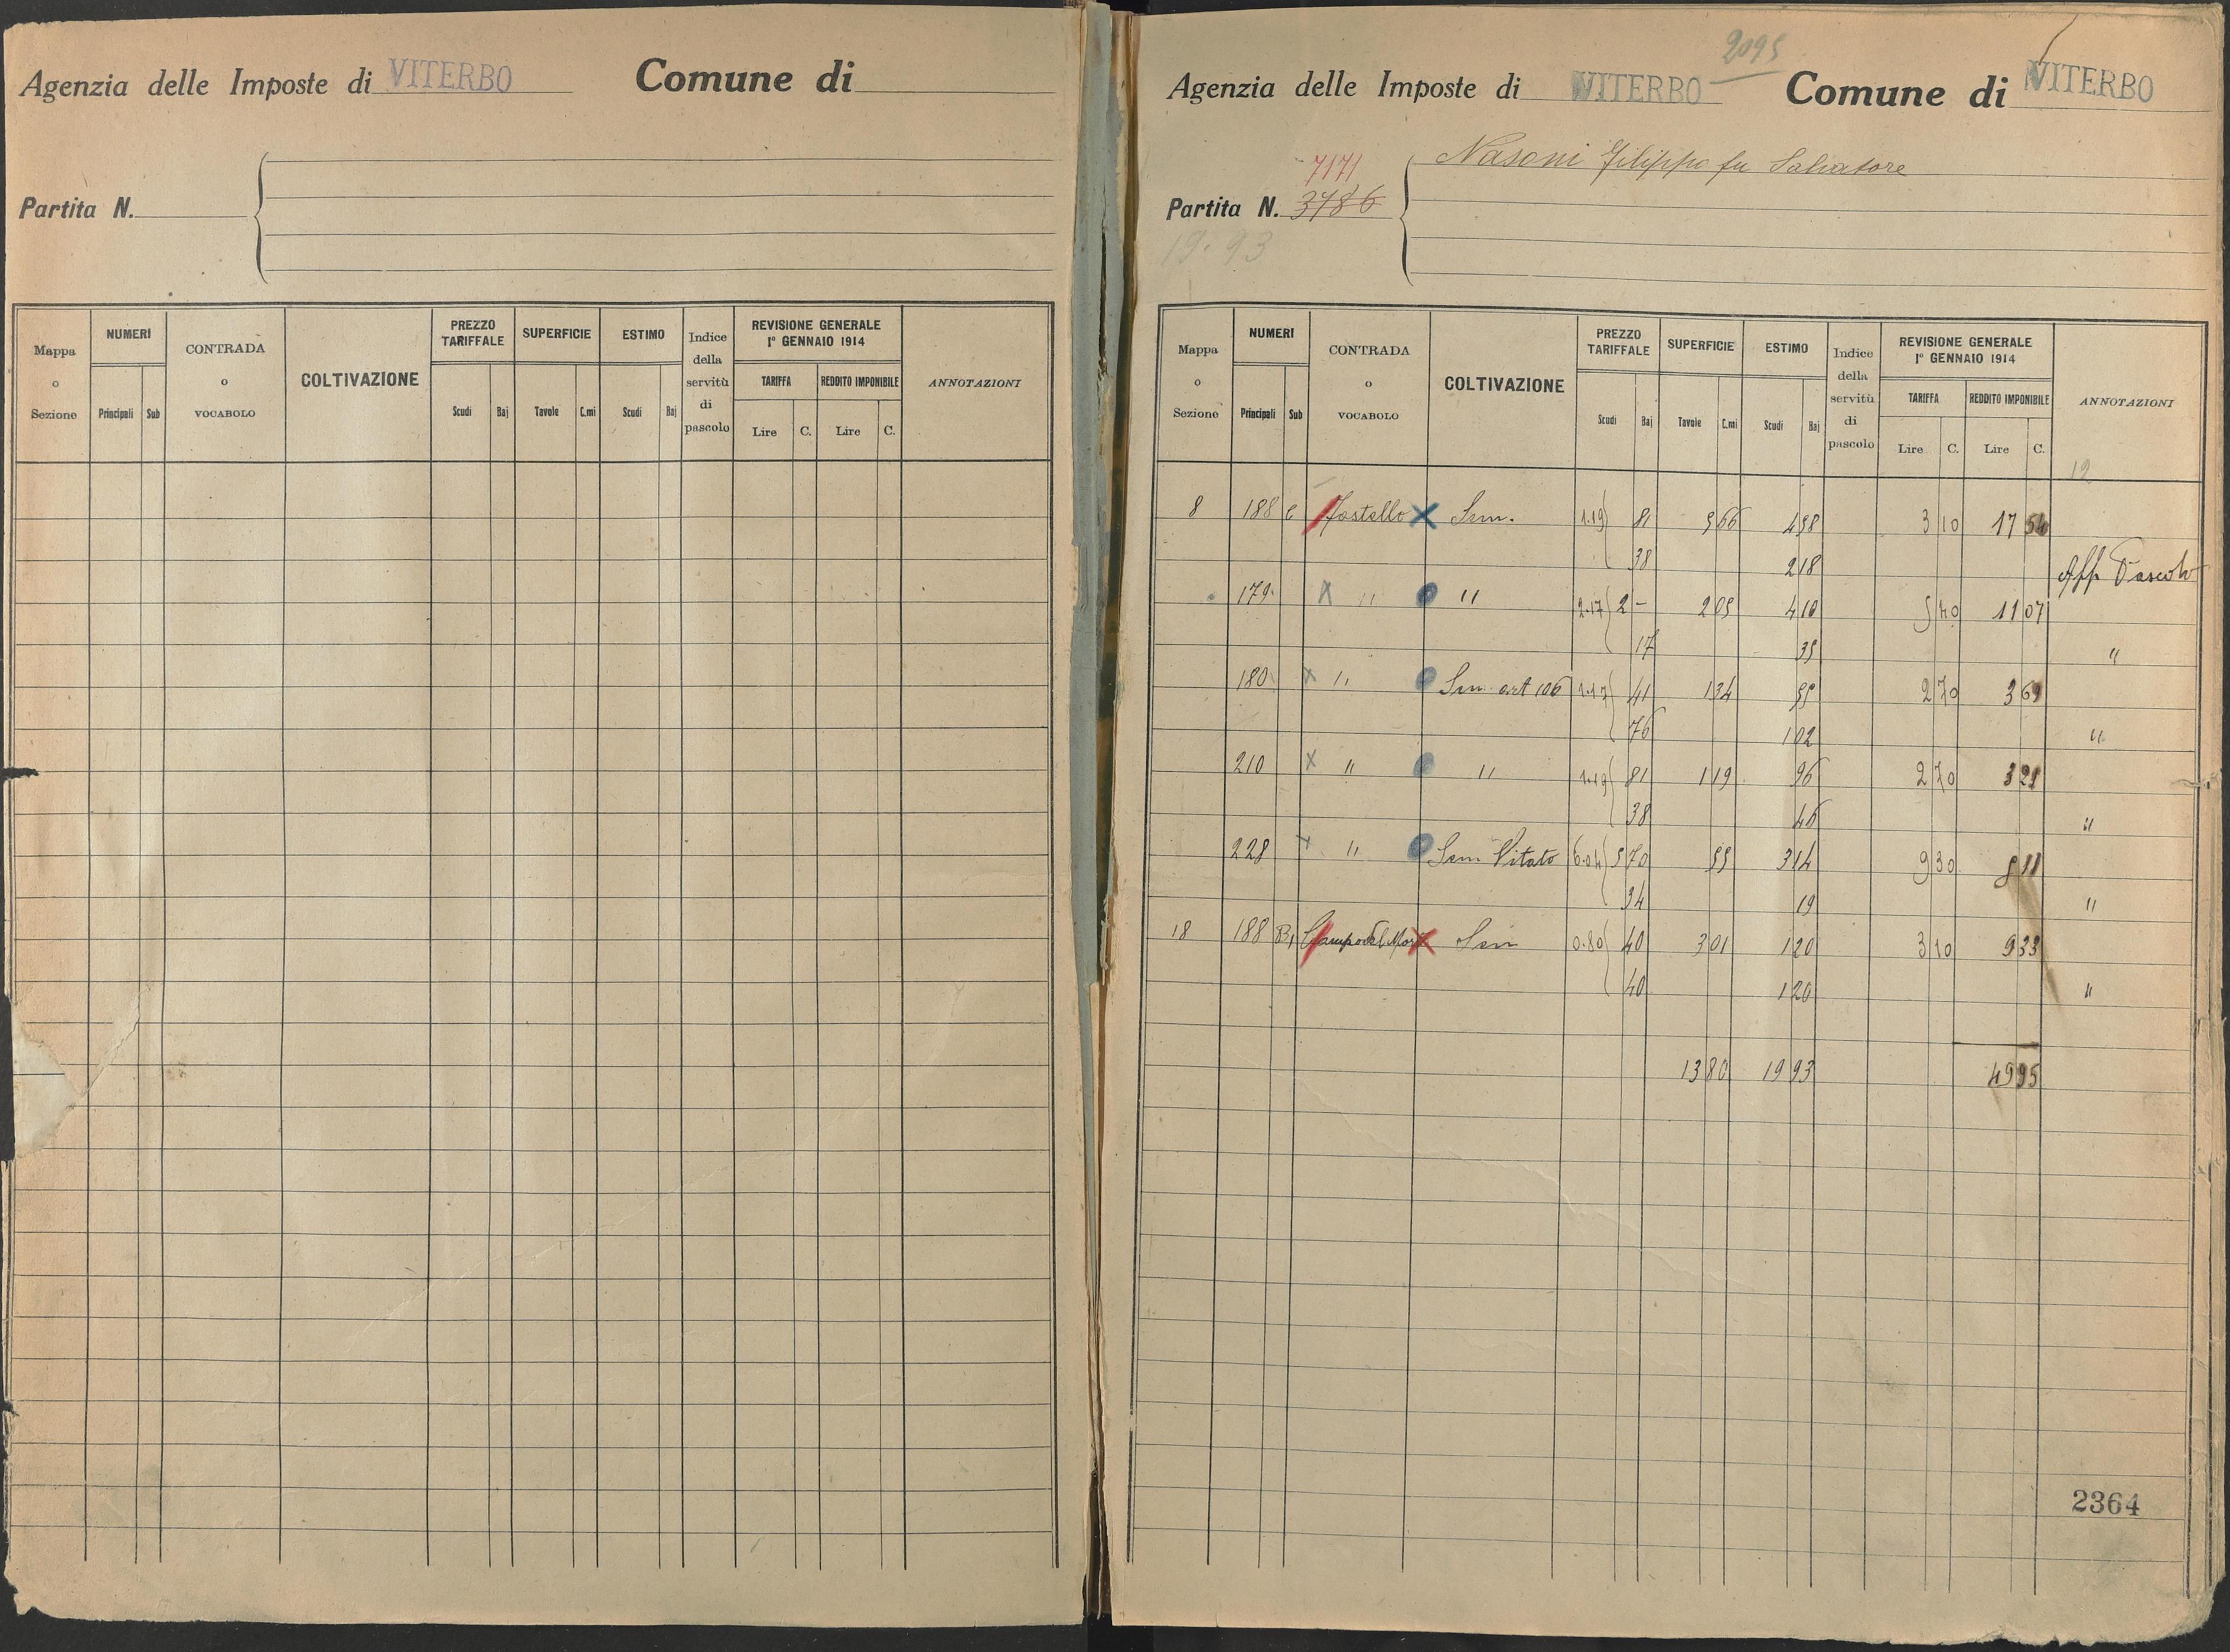 Agenzia delle Imposte di VITERBO Comune di
Partita N.
Mappa o Sezione
NUMERI
Principali Sub
CONTRADA o VOCABOLO
COLTIVAZIONE
PREZZO TARIFFALE
Scudi Baj
SUPERFICIE
Tavole C.mi
ESTIMO
Scudi Baj
Indice della servitù di pascolo
REVISIONE GENERALE
1° GENNAIO 1914
TARIFFA REDDITO IMPONIBILE
Lire C. Lire C.
ANNOTAZIONI
2095
Agenzia delle Imposte di VITERBO Comune di VITERBO
Nasoni Filippo fu Salvatore
7171
Partita N. 3786
19.93
Mappa o Sezione
NUMERI
Principali Sub
CONTRADA o VOCABOLO
COLTIVAZIONE
PREZZO TARIFFALE
Scudi Baj
SUPERFICIE
Tavole C.mi
ESTIMO
Scudi Baj
Indice della servitù di pascolo
REVISIONE GENERALE
1° GENNAIO 1914
TARIFFA REDDITO IMPONIBILE
Lire C. Lire C.
ANNOTAZIONI
12
8 188 Sem. 1.19 81 5 66 4 58 3 10 17 54
38 2 18 Aff Pascolo
179 " " 2.17 2 - 2 05 4 10 5 40 11 07
17 35 "
180 " Sem art 106 1.17 41 1 34 55 2 70 3 69
76 1 02 "
210 " " 1.19 81 1 19 96 2 70 3 21
38 46 "
228 " Sem Vitato 6.04 5 70 55 3 14 9 30 5 11
34 19 "
18 188 B1 Campo del Moro Sem 0.80 40 3 01 1 20 3 10 9 33
40 1 20 "
13 80 19 93 49 95
2364